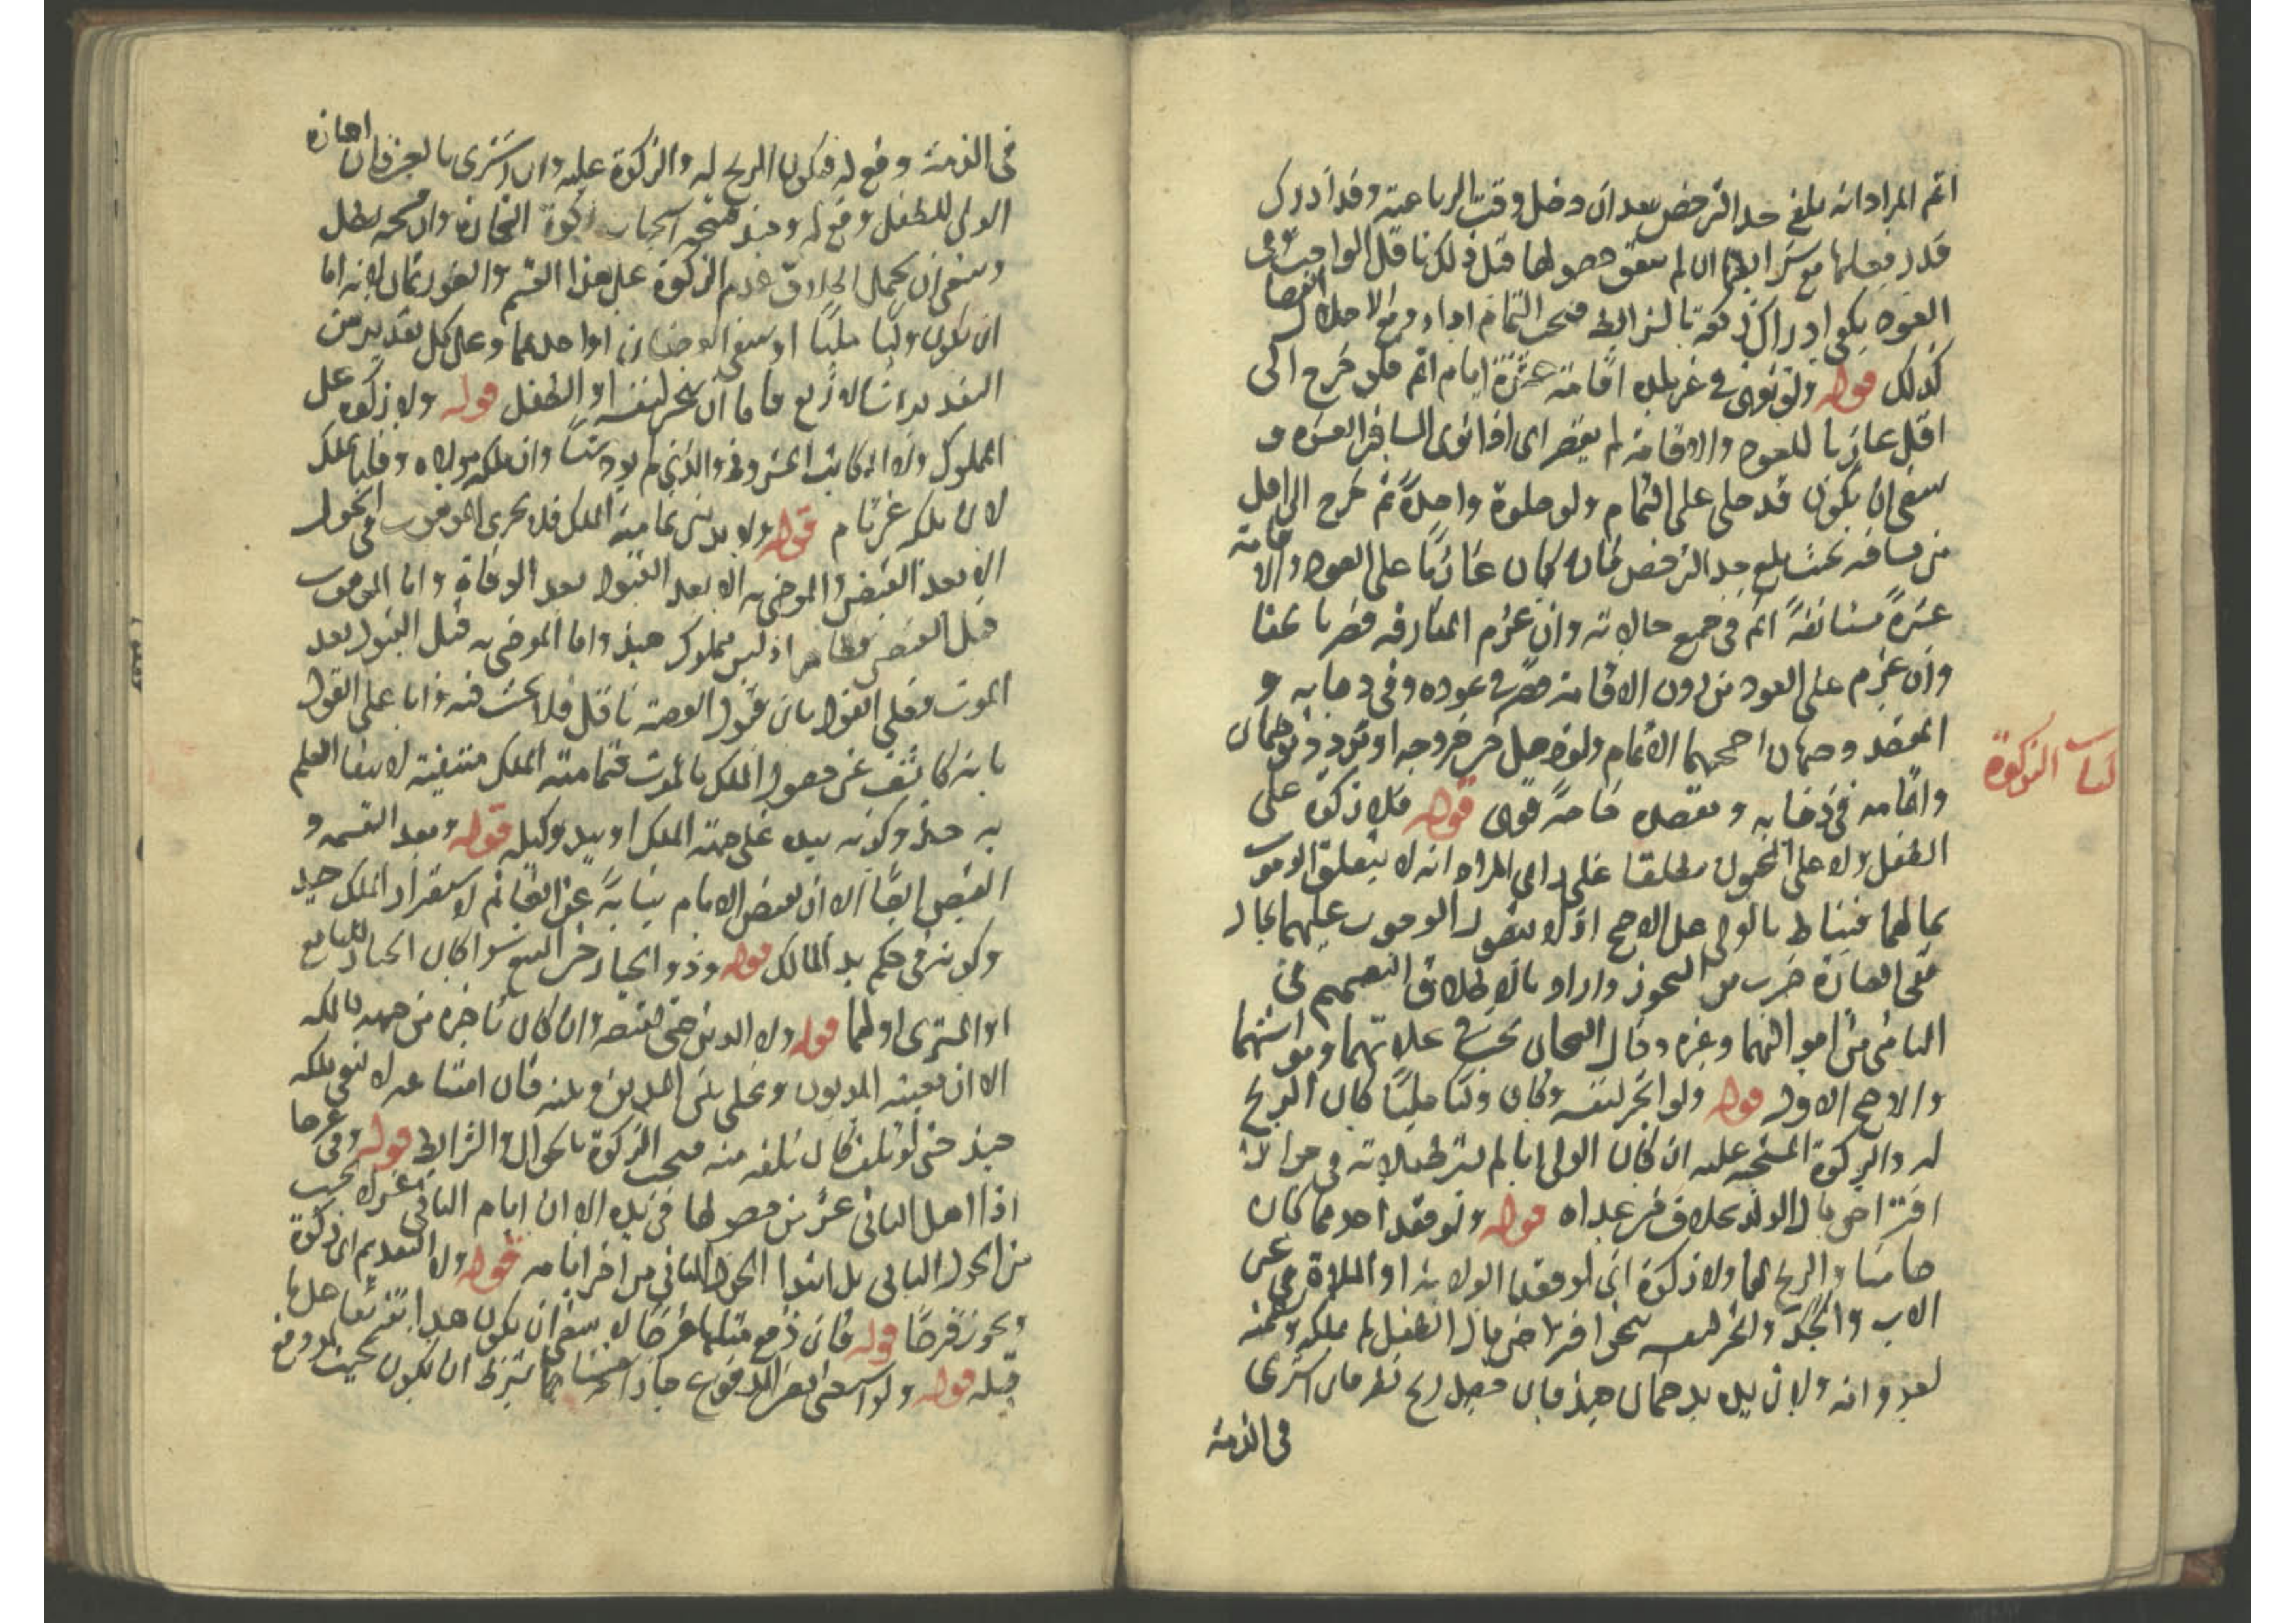 اتم المراد انه بلغ حد الترخص بعد ان دخل وقت الرباعية وقد ادرك
قدر فعلها مع شرايطها ان لم يتفق حصولها قبل ذلك تا قل الواجب وفى
العود يكفى ادراك ركعة بالشرايط فيجب التمام اداء ومع الاخلال القضا
كذلك قوله ولو نوى في غير بلده اقامة عشرة ايام اتم فلو خرج الى
اقل عازما للعود والاقامة لم يقصر اى اذا نوى المسافر العشرة و
ينبغى ان يكون قد صلى على التمام ولو صلوة واحدة ثم خرج الى اقل
من مسافة بحيث بلغ حد الترخص فانه كان عازما على العود والاقامة
عشرة مستانفة اتم فى جميع حالاته وان عزم المفارقة قصر
وان عزم على العود من دون الاقامة قصر في عوده وفى ذهابه و
المقصد وجهان اصحهما الاتمام ولو ذهل حين خروجه او تردد فوجهان
واتمامه فى ذهابه ومقصده خاصة قوى قوله فلا زكوة على
كتاب الزكوة
الطفل ولا على المجنون مطلقا على راى المراد انه لا يتعلق الوجوب
بمالهما فيناط بالولى على الاصح اذ لا يتصور الوجوب عليهما بحال
ففى العبارة ضرب من التجوز واراد بالاطلاق التعميم فى
النامى من اموالهما وغيره وقال الشيخان تجب في غلاتهما ومواشيهما
والاصح الاول قوله ولو اتجر لنفسه وكان وليا مليا كان الربح
له والزكوة المستحبة عليه ان كان الولى ابا لم يشترط ملاءته فى جواز
اقتراض مال الولد بخلاف من عداه قوله ولو فقد احدهما كان
ضامنا والربح لهما ولا زكوة اى لو فقد الولاية او الملاءة فى غير
الاب والجد واتجر لنفسه اقتراض مال الطفل لم يملكه وضمنه
لعدوانه ولان يده يد ضمان حينئذ فان حصل ربح نظر فان اشترى
فى الذمة
فى الذمة وقع له فيكون الربح له والزكوة عليه وان اشترى بالعين فان اجازه
الولى للطفل وقع له وحينئذ فيتجه استحباب زكوة التجارة وان لم يجز بطل
وينبغى ان يحمل اطلاق عدم الزكوة على هذا القسم والصور ثمان لانه اما
ان يكون وليا مليا او ينتفى الوصفان او احدهما وعلى كل تقدير من
التقديرات الاربع فاما ان يتجر لنفسه او للطفل قوله ولا زكوة على
المملوك ولا المكاتب المشروط والذى لم يود شيئا وان ملكه مولاه وقلنا يملك
لان ملكه غير تام قوله ولا بد من تمامية الملك فلا يجرى الموهوب فى الحول
الا بعد القبض والموصى به الا بعد القبول بعد الوفاة واما الموهوب
قبل القبض فظاهر اذ ليس مملوك حينئذ واما الموصى به قبل القبول بعد
الموت فعلى القول بان قبول الوصية ناقل فلا بحث فيه واما على القول
بانه كاشف عن حصول الملك بالموت فتمامية الملك منتفية لانتفا العلم
به حينئذ وكونه بيده على جهة الملك او بيد وكيله قوله وبعد القسمة و
القبض ايضا الا ان يقبض الامام نيابة عن الغانم لاستقرار الملك حينئذ
وكونه فى حكم يد المالك قوله وذو الخيار حين البيع سوا كان الخيار للبايع
او المشترى او لهما قوله ولا الدين حتى يقبضه وان كان تاخيره من جهة مالكه
الا ان يعينه المديون ويخلى بين الدين وبينه فان امتناعه لا ينفى ملكه
حينئذ حتى لو تلف كان تلفه منه فيجب الزكوة بالحول والشرايط قوله وفى غيرها
اذا اهل الثانى عشر من حصولها فى يده الا ان ايام الثانى عشر لا تحسب
من الحول الثانى بل ابتدا الحول الثانى من اخر ايامه قوله ولا التقديم اى زكوة
ويجوز قرضا قوله فان دفع مثلها قرضا لا ينبغى ان يكون هذا تفريعا على ما
قبله قوله ولو استغنى بعين المدفوع جاز احتسابها بشرط ان يكون بحيث لو دفع